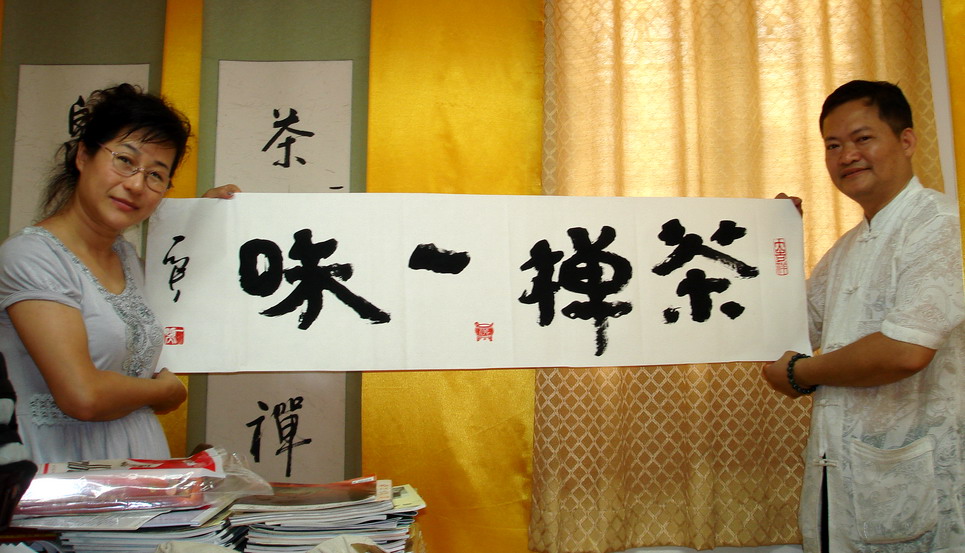 茶禅一味
茶
禪